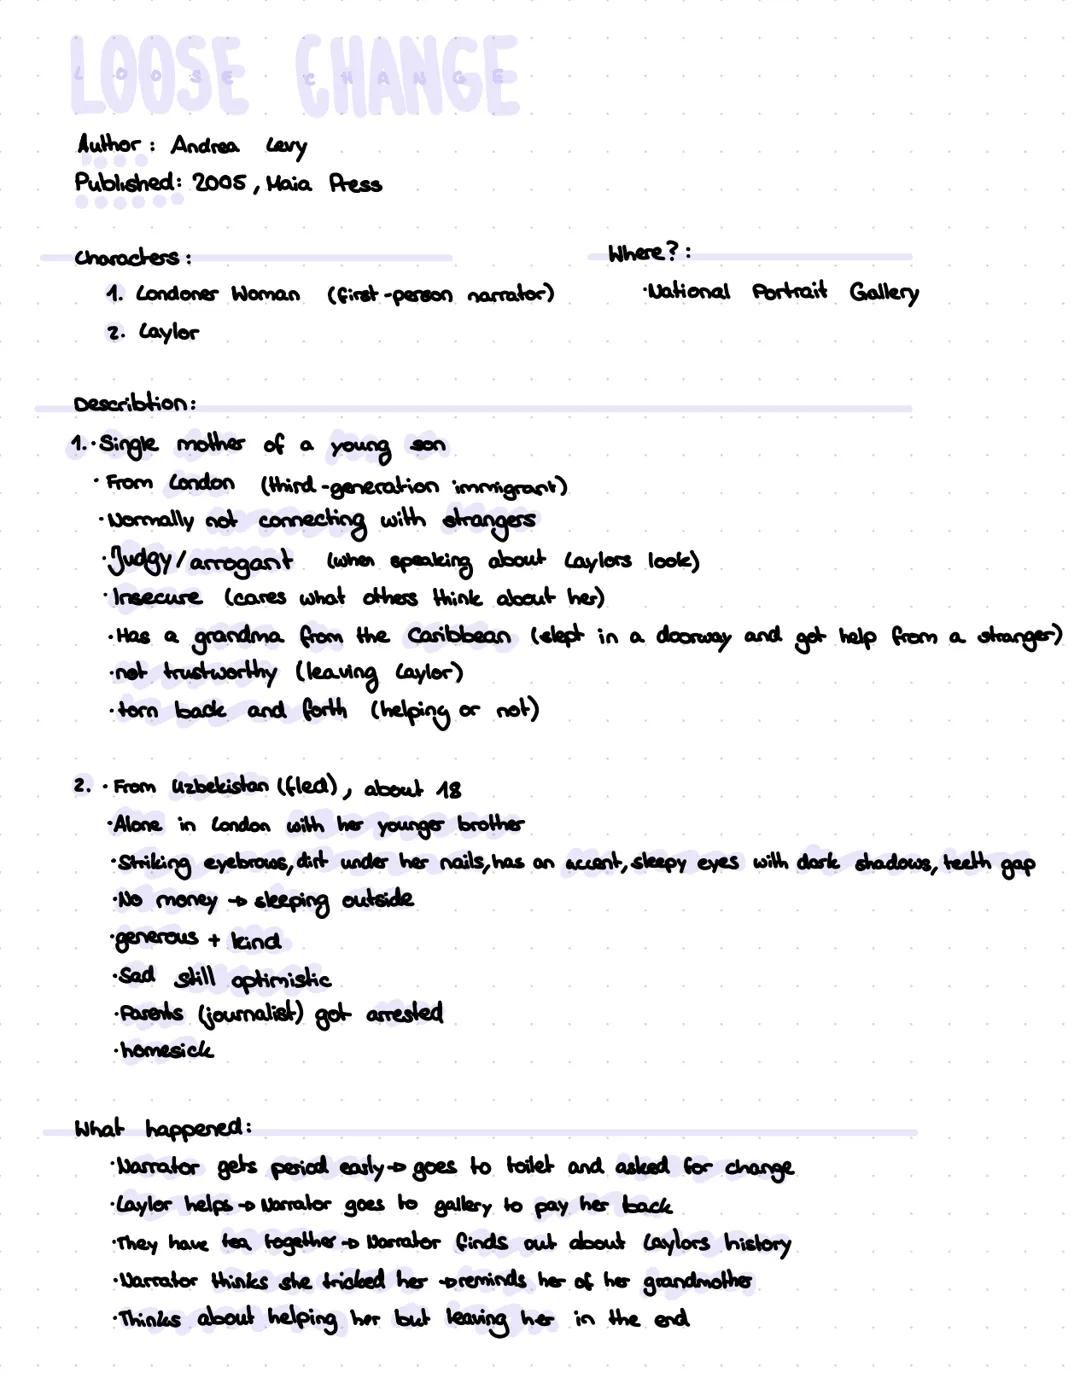 LOOSE CHANGE
LOOSE CHANGE
Author: Andrea Levy
Published: 2005, Maia Press
Characters:
1. Londoner Woman (first-person narrator)
2. Laylor
Where?:
·National Portrait Gallery
Describtion:
1.·Single mother of a young son
·From London (third-generation immigrant)
·Normally not connecting with strangers
·Judgy/arrogant (when speaking about Laylors look)
·Insecure (cares what others think about her)
·Has a grandma from the Caribbean (slept in a doorway and got help from a stranger)
·not trustworthy (leaving Laylor)
·torn back and forth (helping or not)
2. ·From Uzbekistan (fled), about 18
·Alone in London with her younger brother
·Striking eyebrows, dirt under her nails, has an accent, sleepy eyes with dark shadows, teeth gap
·No money → sleeping outside
·generous + kind
·Sad still optimistic
·Parents (journalist) got arrested
·homesick
What happened:
·Narrator gets period early→ goes to toilet and asked for change
·Laylor helps → Narrator goes to gallery to pay her back
·They have tea together → Narrator finds out about Laylors history
·Narrator thinks she tricked her →reminds her of her grandmother
·Thinks about helping her but leaving her in the end